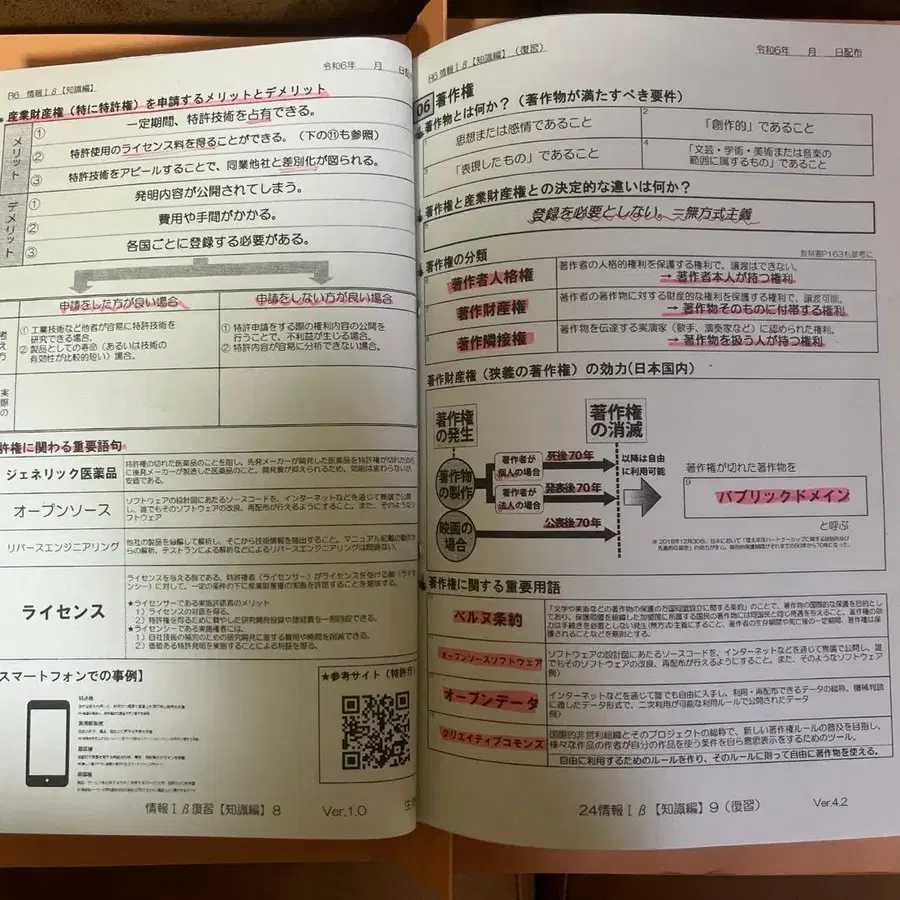 R6 情報Ⅰβ【知識編】
令和6年　月　日配
産業財産権（特に特許権）を申請するメリットとデメリット
メリット
① 一定期間、特許技術を占有できる。
② 特許使用のライセンス料を得ることができる。（下の⑪も参照）
③ 特許技術をアピールすることで、同業他社と差別化が図られる。
デメリット
① 発明内容が公開されてしまう。
② 費用や手間がかかる。
③ 各国ごとに登録する必要がある。
申請をした方が良い場合
申請をしない方が良い場合
考え方
① 工業技術など他者が容易に特許技術を
研究できる場合。
② 製品としての寿命（あるいは技術の
有効性が比較的短い）場合。
① 特許申請をする際の権利内容の公開を
行うことで、不利益が生じる場合。
② 特許内容が容易に分析できない場合。
許権に関わる重要語句
ジェネリック医薬品
特許権の切れた医薬品のことを指し、先発メーカーが開発した医薬品を特許権が切れたのち
に後発メーカーが製造した医薬品のこと。開発費が抑えられるため、効能は変わらないが、
安価である。
オープンソース
ソフトウェアの設計図にあたるソースコードを、インターネットなどを通じて無償で公開
し、誰でもそのソフトウェアの改良、再配布が行えるようにすること。また、そのような
フトウェア
リバースエンジニアリング
他社の製品を分解して解析し、そこから技術情報を抽出すること。マニュアル記載の動作か
らの解析、テストランによる解析などによるリバースエンジニアリングは問題ない。
ライセンス
ライセンスを与える側である、特許権者（ライセンサー）がライセンスを受ける側（ライセ
ンシー）に対して、一定の条件の下に産業財産権の実施を許諾することを意味する。
★ライセンサーである実施許諾者のメリット
1）ライセンスの対価を得る。
2）特許権を得るために費やした研究開発投資や諸経費を一部回収できる。
★ライセンシーである実施権者には、
1）自社技術の補完のための研究開発に要する費用や時間を削減できる。
2）価値ある特許発明を実施することによる利益を得る。
スマートフォンでの事例】
★参考サイト（特許庁）
情報Ⅰβ復習【知識編】8
Ver.1.0
R6 情報Ⅰβ【知識編】（復習）
令和6年　月　日配布
06 著作権
著作物とは何か？（著作物が満たすべき要件）
1 思想または感情であること
2 「創作的」であること
3 「表現したもの」であること
4 「文芸・学術・美術または音楽の
範囲に属するもの」であること
著作権と産業財産権との決定的な違いは何か？
5 登録を必要としない。＝無方式主義
著作権の分類
教科書P163も参考に
著作者人格権
著作者の人格的権利を保護する権利で、譲渡はできない。
→ 著作者本人が持つ権利
著作財産権
著作者の著作物に対する財産的な権利を保護する権利で、譲渡可能。
→ 著作物そのものに付帯する権利
著作隣接権
著作物を伝達する実演家（歌手、演奏家など）に認められた権利。
→ 著作物を扱う人が持つ権利
著作財産権（狭義の著作権）の効力(日本国内)
著作権
の発生
著作権
の消滅
著作物
の製作
著作者が
個人の場合
死後70年
著作者が
法人の場合
発表後70年
映画の
場合
公表後70年
以降は自由
に利用可能
著作権が切れた著作物を
9 パブリックドメイン
と呼ぶ
著作権に関する重要用語
ベルヌ条約
オープンソースソフトウェア
ソフトウェアの設計図にあたるソースコードを、インターネットなどを通じて無償で公開し、誰
でもそのソフトウェアの改良、再配布が行えるようにすること。また、そのようなソフトウェア
オープンデータ
インターネットなどを通じて誰でも自由に入手し、利用・再配布できるデータの総称。機械判読
に適したデータ形式で、二次利用が可能な利用ルールで公開されたデータ
例）
クリエイティブコモンズ
国際的非営利組織とそのプロジェクトの総称で、新しい著作権ルールの普及を目指し、
様々な作品の作者が自分の作品を使う条件を自ら意思表示をするためのツール。
自由に利用するためのルールを作り、そのルールに則って自由に著作物を使える。
24情報Ⅰβ【知識編】9（復習）
Ver.4.2